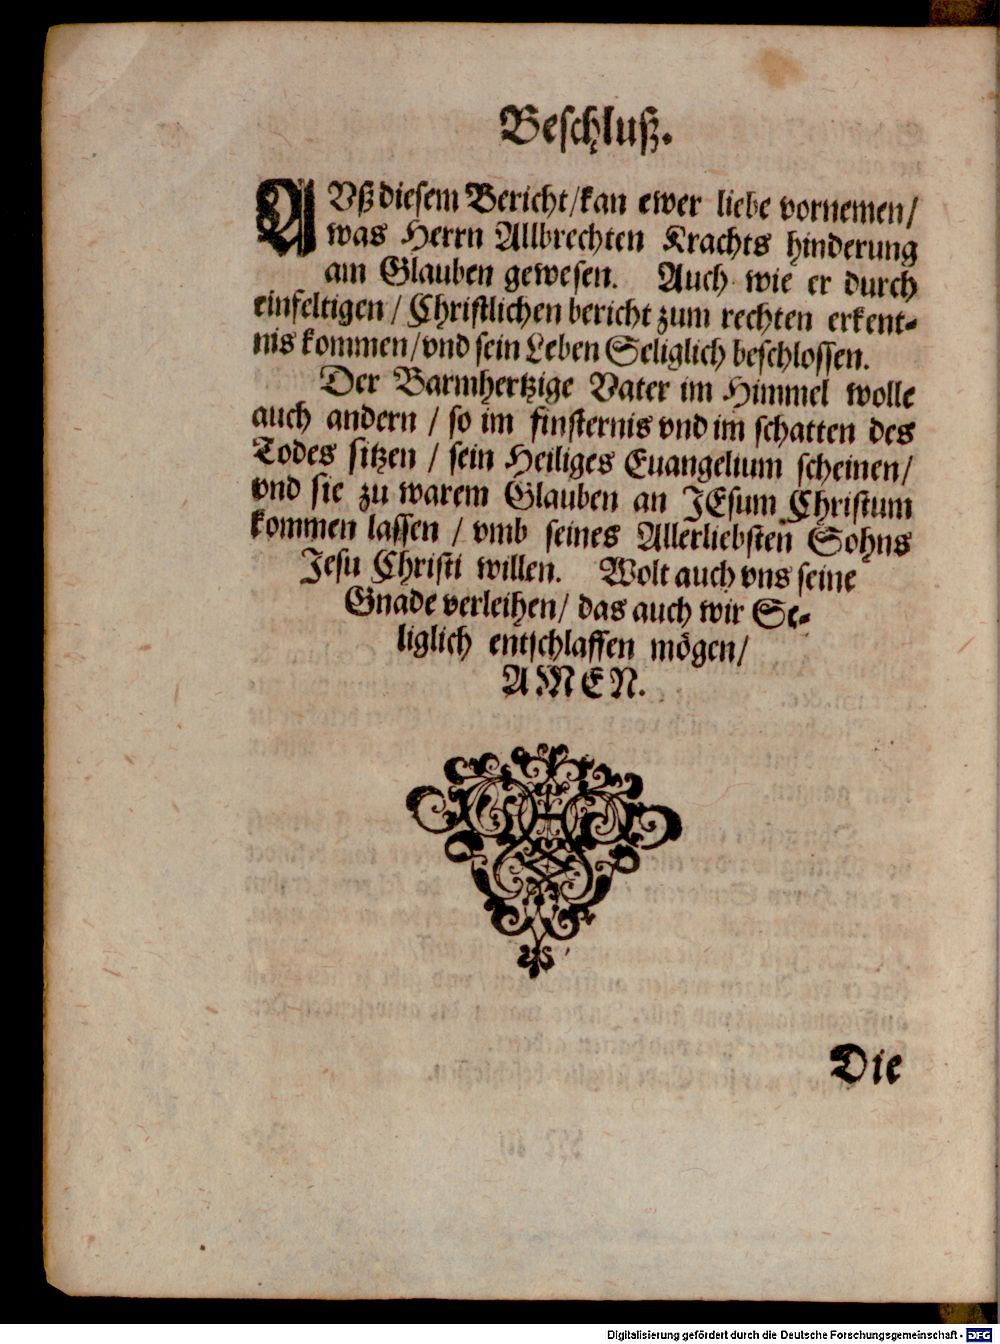 Beschluß.
AVß diesem Bericht/kan ewer liebe vornemen/
was Herrn Allbrechten Krachts hinderung
am Glauben gewesen. Auch wie er durch
einfeltigen / Christlichen bericht zum rechten erkent-
nis kommen/vnd sein Leben Seliglich beschlossen.
Der Barmhertzige Vater im Himmel wolle
auch andern / so im finsternis vnd im schatten des
Todes sitzen / sein Heiliges Euangelium scheinen/
vnd sie zu warem Glauben an JEsum Christum
kommen lassen / vmb seines Allerliebsten Sohns
Jesu Christi willen. Wolt auch vns seine
Gnade verleihen/ das auch wir Se-
liglich entschlaffen mögen/
AMEN.
Die
Digitalisierung gefördert durch die Deutsche Forschungsgemeinschaft - DFG